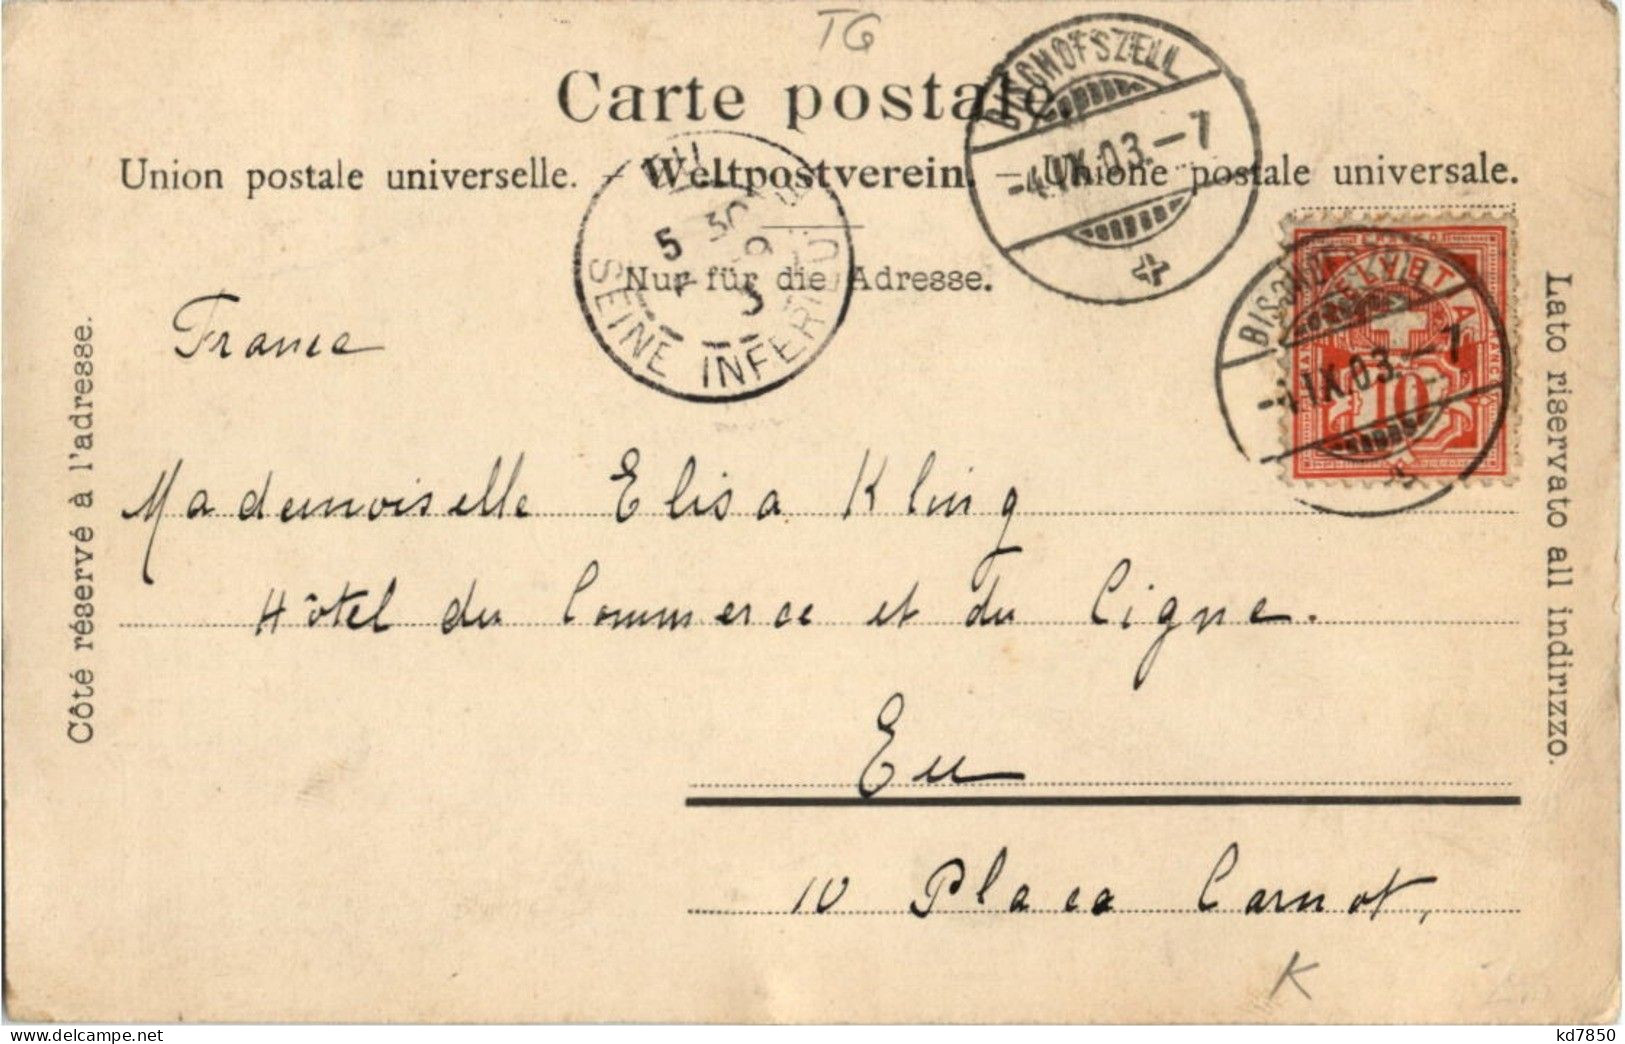 TG
Carte postale.
Union postale universelle. – Weltpostverein. – Unione postale universale.
Nur für die Adresse.
BISCHOFSZELL
-4.IX.03.–7
EU
5
SEINE INFERIEU
BISCHOFSZELL
-4.IX.03.–7
HELVETIA
10
Côté réservé à l'adresse.
Lato riservato all indirizzo.
France
Mademoiselle Elisa Kling
Hôtel du Commerce et du Cigne.
Eu
10 Place Carnot,
K
kd7850